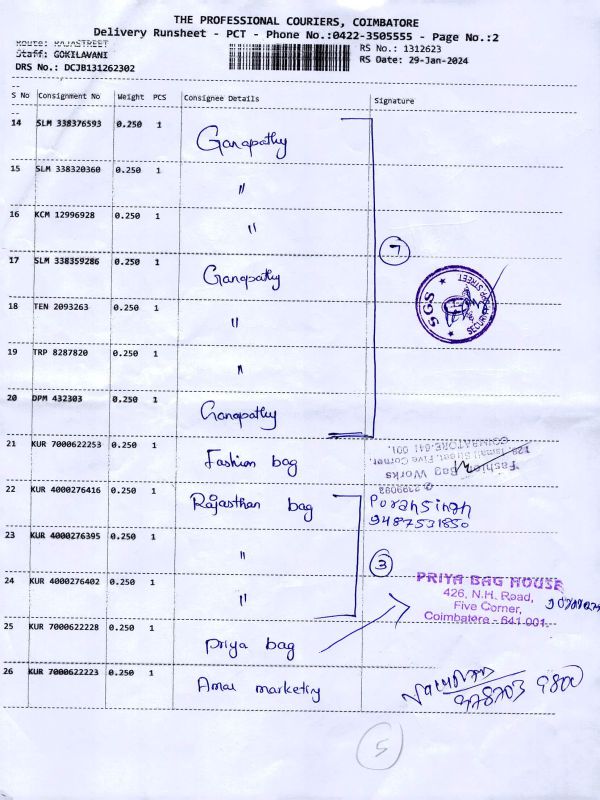 THE PROFESSIONAL COURIERS, COIMBATORE
Delivery Runsheet - PCT - Phone No.:0422-3505555 - Page No.:2
Route: RAJASTREET
Staff: GOKILAVANI
DRS No.: DCJB131262302
RS No.: 1312623
RS Date: 29-Jan-2024
S No Consignment No Weight PCS Consignee Details Signature
14 SLM 338376593 0.250 1 Ganapathy
15 SLM 338320360 0.250 1 "
16 KCM 12996928 0.250 1 "
7
17 SLM 338359286 0.250 1 Ganapathy
SGS SECURITY STREET
18 TEN 2093263 0.250 1 "
19 TRP 8287820 0.250 1 "
20 DPM 432303 0.250 1 Ganapathy
21 KUR 7000622253 0.250 1 Fashion bag
Fashion Bag Works
129, Jamali Street, Five Corner,
COIMBATORE-641 001.
22 KUR 4000276416 0.250 1 Rajasthan bag
Poransingh
9487531850
23 KUR 4000276395 0.250 1 "
3
24 KUR 4000276402 0.250 1 "
PRIYA BAG HOUSE
426, N.H. Road,
Five Corner,
Coimbatore - 641 001.
25 KUR 7000622228 0.250 1 Priya bag
26 KUR 7000622223 0.250 1 Amar marketing
5